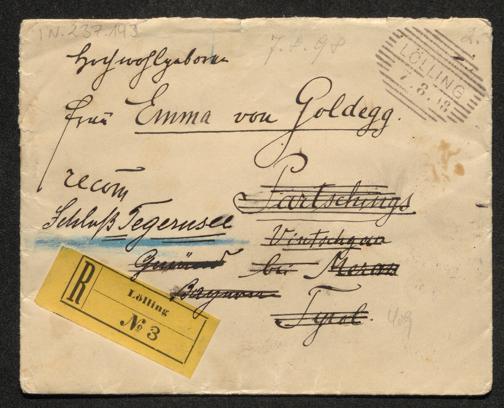 IN. 237.193
7.8.98
2.
LÖLLING
7.8.98
Hochwohlgeboren
Frau Emma von Goldegg.
recom
Partschings
Schloß Tegernsee
Vintschgau
Gmünd
bei Meran
Bayern
Tyrol.
R
Lölling
№ 3